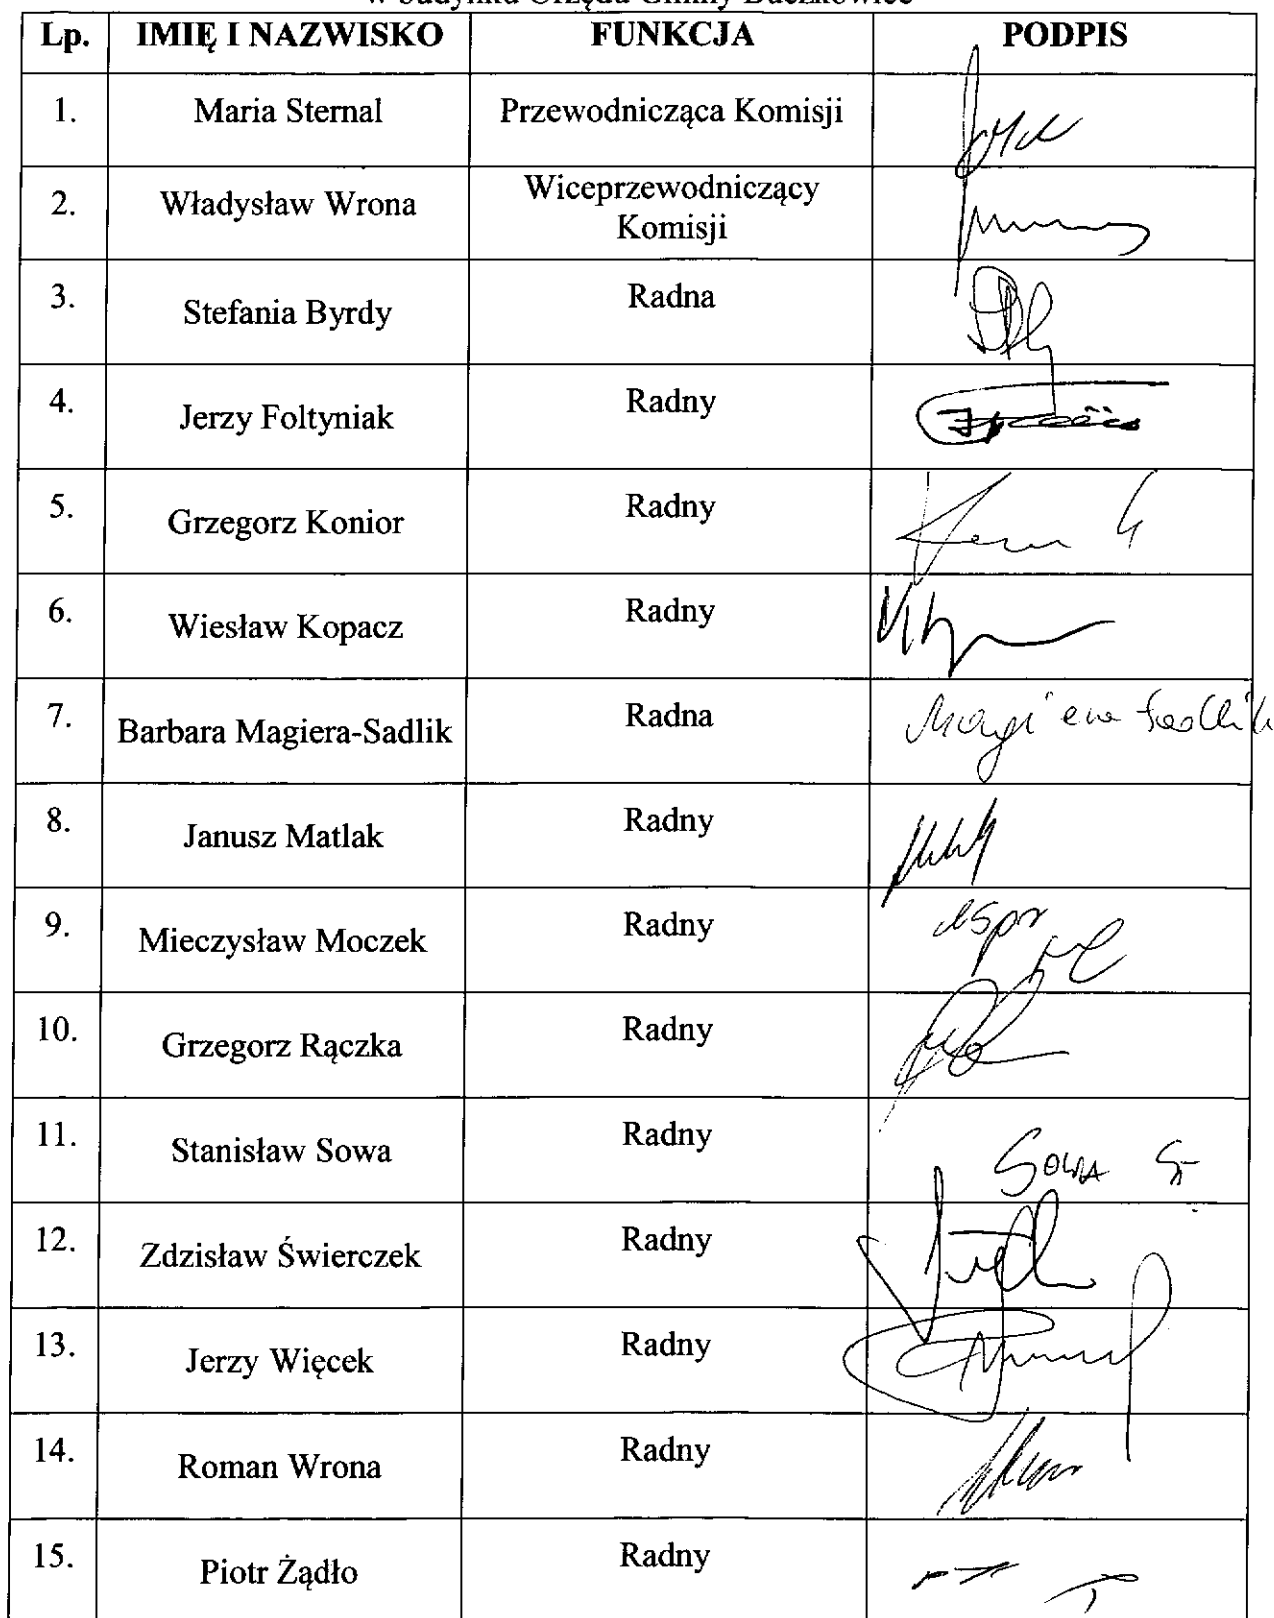 w budynku Urzędu Gminy Buczkowice
Lp. IMIĘ I NAZWISKO FUNKCJA PODPIS
1. Maria Sternal Przewodnicząca Komisji
2. Władysław Wrona Wiceprzewodniczący
Komisji
3. Stefania Byrdy Radna
4. Jerzy Foltyniak Radny
5. Grzegorz Konior Radny
6. Wiesław Kopacz Radny
7. Barbara Magiera-Sadlik Radna Magiera Sadlik
8. Janusz Matlak Radny
9. Mieczysław Moczek Radny
10. Grzegorz Rączka Radny
11. Stanisław Sowa Radny SOWA St
12. Zdzisław Świerczek Radny
13. Jerzy Więcek Radny
14. Roman Wrona Radny
15. Piotr Żądło Radny